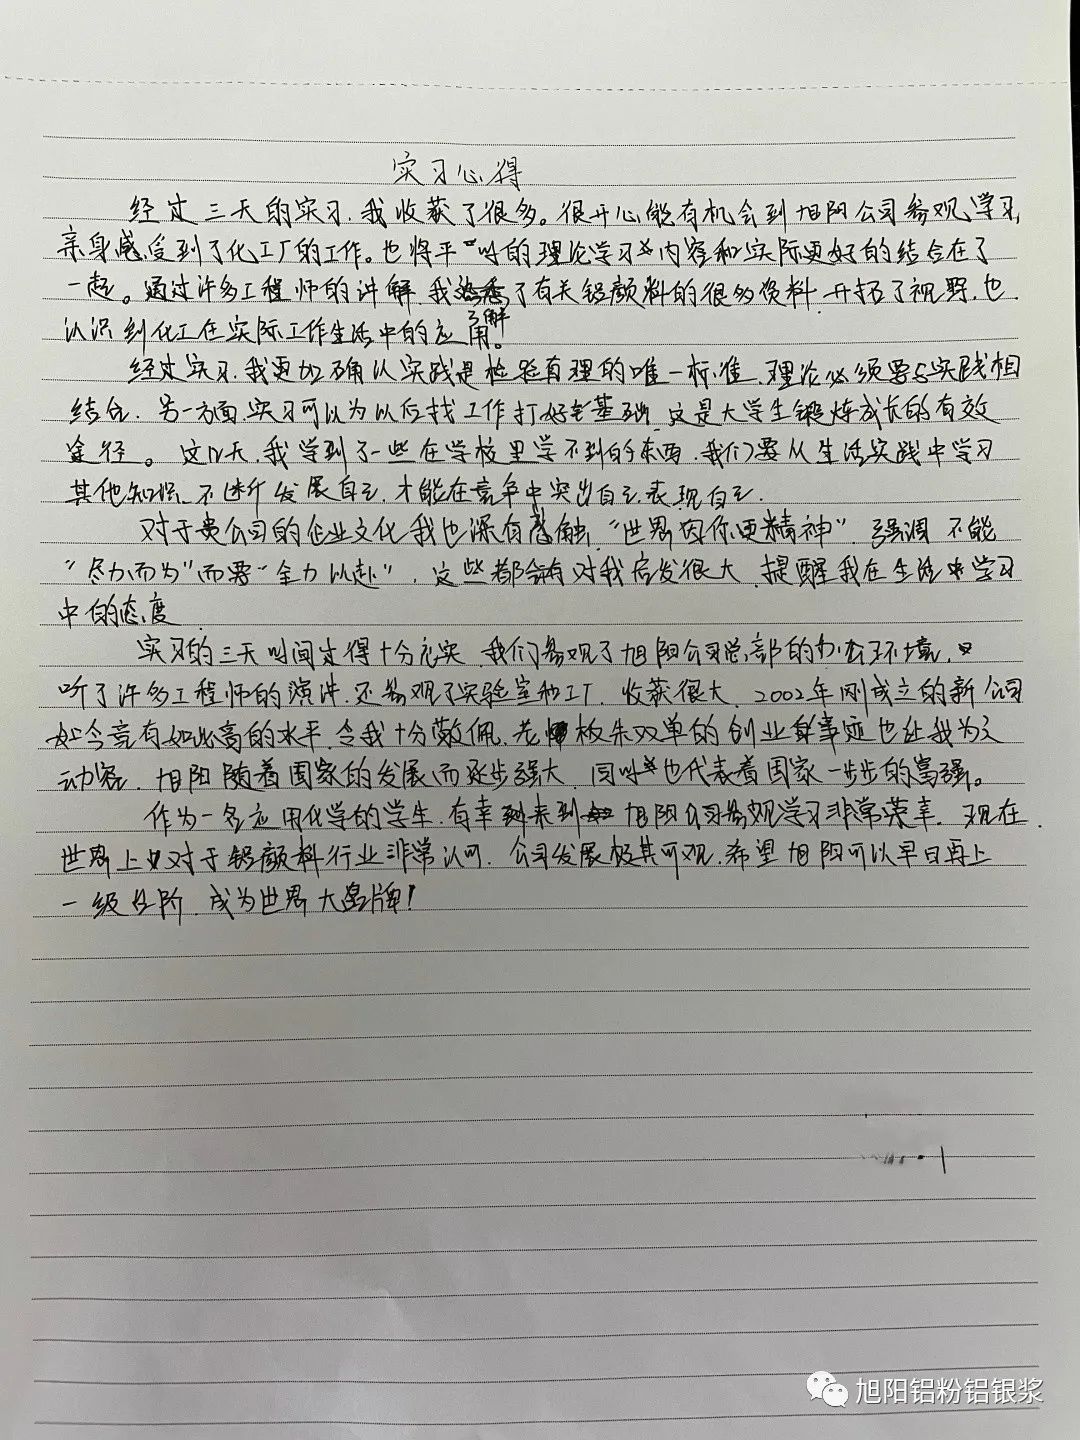 实习心得
经过三天的实习,我收获了很多。很开心能有机会到旭阳公司参观学习,
亲身感受到了化工厂的工作。也将平时的理论学习内容和实际更好的结合在了
一起。通过许多工程师的讲解,我了解了有关铝颜料的很多资料,开拓了视野,也
认识到化工在实际工作生活中的应用。
经过实习,我更加确认实践是检验真理的唯一标准,理论必须要与实践相
结合.另一方面,实习可以为以后找工作打好基础,这是大学生锻炼成长的有效
途径。这几天,我学到了一些在学校里学不到的东西,我们要从生活实践中学习
其他知识,不断发展自己,才能在竞争中突出自己,表现自己.
对于贵公司的企业文化我也深有感触,“世界因你更精神”,强调不能
“尽力而为”而要“全力以赴”,这些都对我启发很大,提醒我在生活学习
中的态度
实习的三天时间过得十分充实,我们参观了旭阳公司总部的办公环境,
听了许多工程师的演讲,还参观了实验室和工厂,收获很大,2002年刚成立的新公司
如今竟有如此高的水平,令我十分敬佩,老板朱双单的创业事迹也让我为之
动容,旭阳随着国家的发展而逐步强大,同时也代表着国家一步步的富强。
作为一名应用化学的学生,有幸来到旭阳公司参观学习非常荣幸.现在
世界上对于铝颜料行业非常认可,公司发展极其可观,希望旭阳可以早日再上
一级台阶,成为世界大品牌!
旭阳铝粉铝银浆